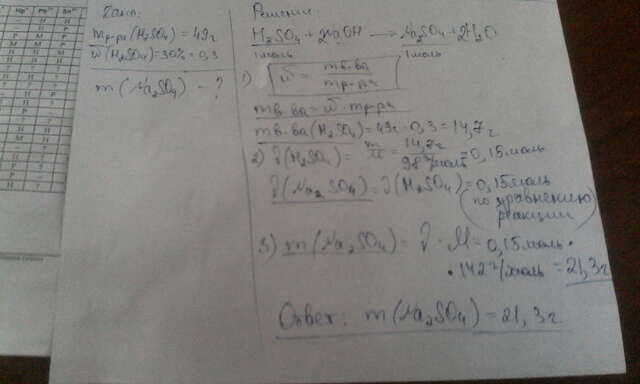 Дано:
mр-ра(H₂SO₄) = 49г
ω(H₂SO₄) = 30% = 0,3
m(Na₂SO₄) - ?
Решение:
H₂SO₄ + 2NaOH → Na₂SO₄ + 2H₂O
1моль 1моль
1) ω = mв-ва / mр-ра
mв-ва = ω · mр-ра
mв-ва(H₂SO₄) = 49г · 0,3 = 14,7г
2) ν(H₂SO₄) = m/M = 14,7г / 98г/моль = 0,15моль
ν(Na₂SO₄) = ν(H₂SO₄) = 0,15моль
(по уравнению
реакции)
3) m(Na₂SO₄) = ν · M = 0,15моль ·
· 142г/моль = 21,3г
Ответ: m(Na₂SO₄) = 21,3г.